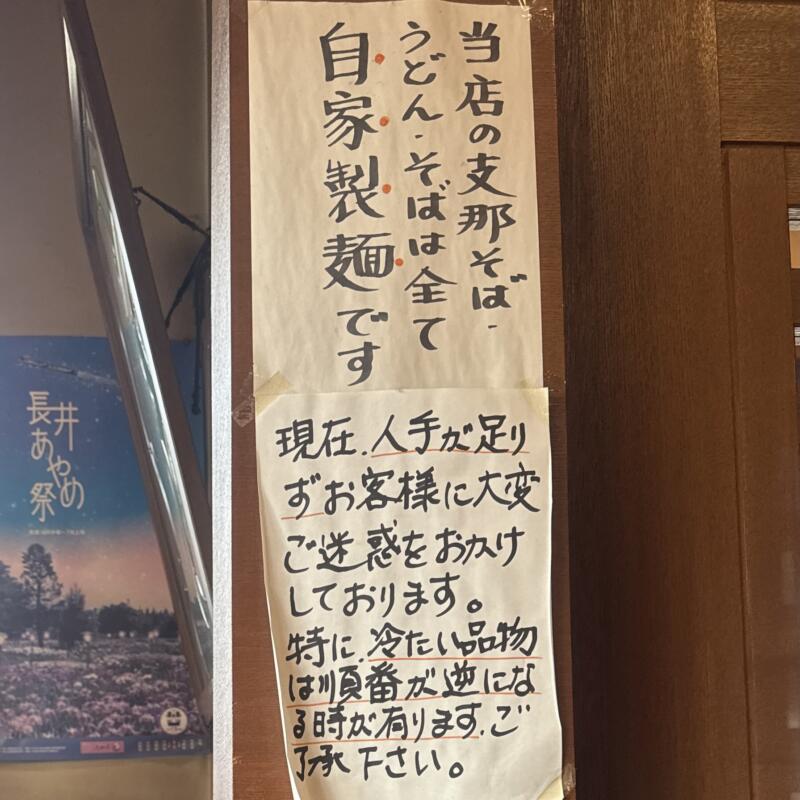 当店の支那そば・
うどん・そばは全て
自家製麺です
現在、人手が足り
ずお客様に大変
ご迷惑をおかけ
しております。
特に、冷たい品物
は順番が逆にな
る時が有ります。ご
了承下さい。
長井
あやめ
祭